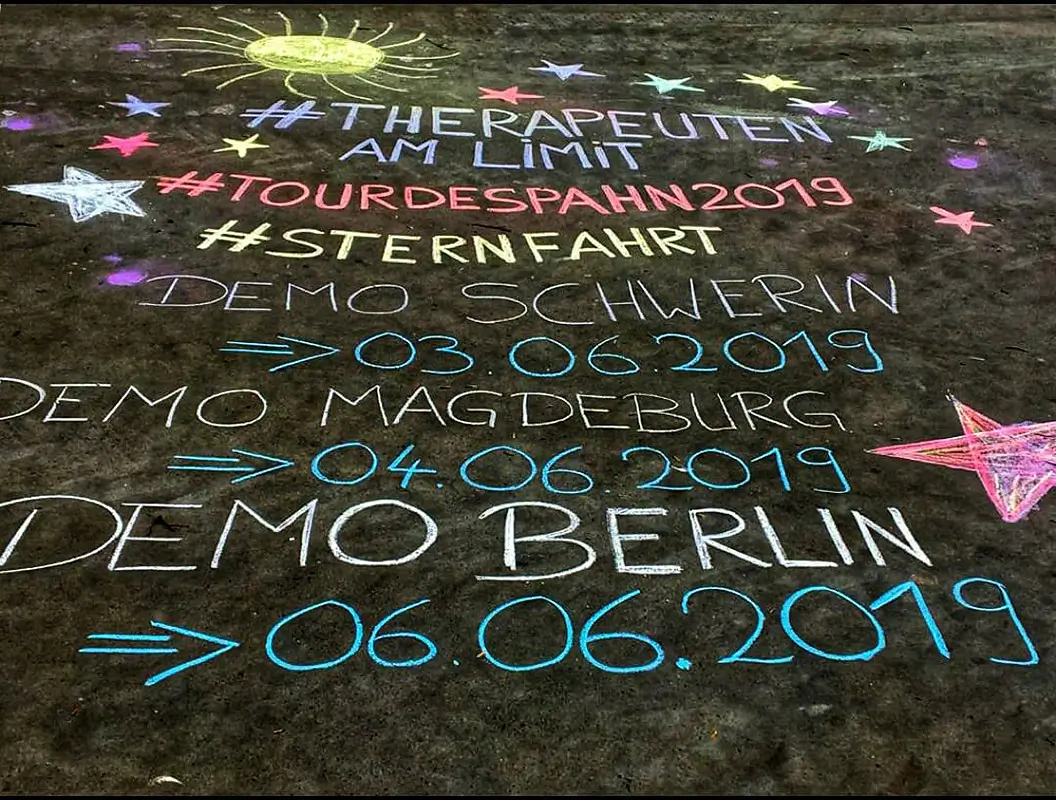 #THERAPEUTEN
AM LiMiT
#TOURDESPAHN2019
#STERNFAHRT
DEMO SCHWERIN
⇒ 03.06.2019
DEMO MAGDEBURG
⇒ 04.06.2019
DEMO BERLIN
⇒ 06.06.2019